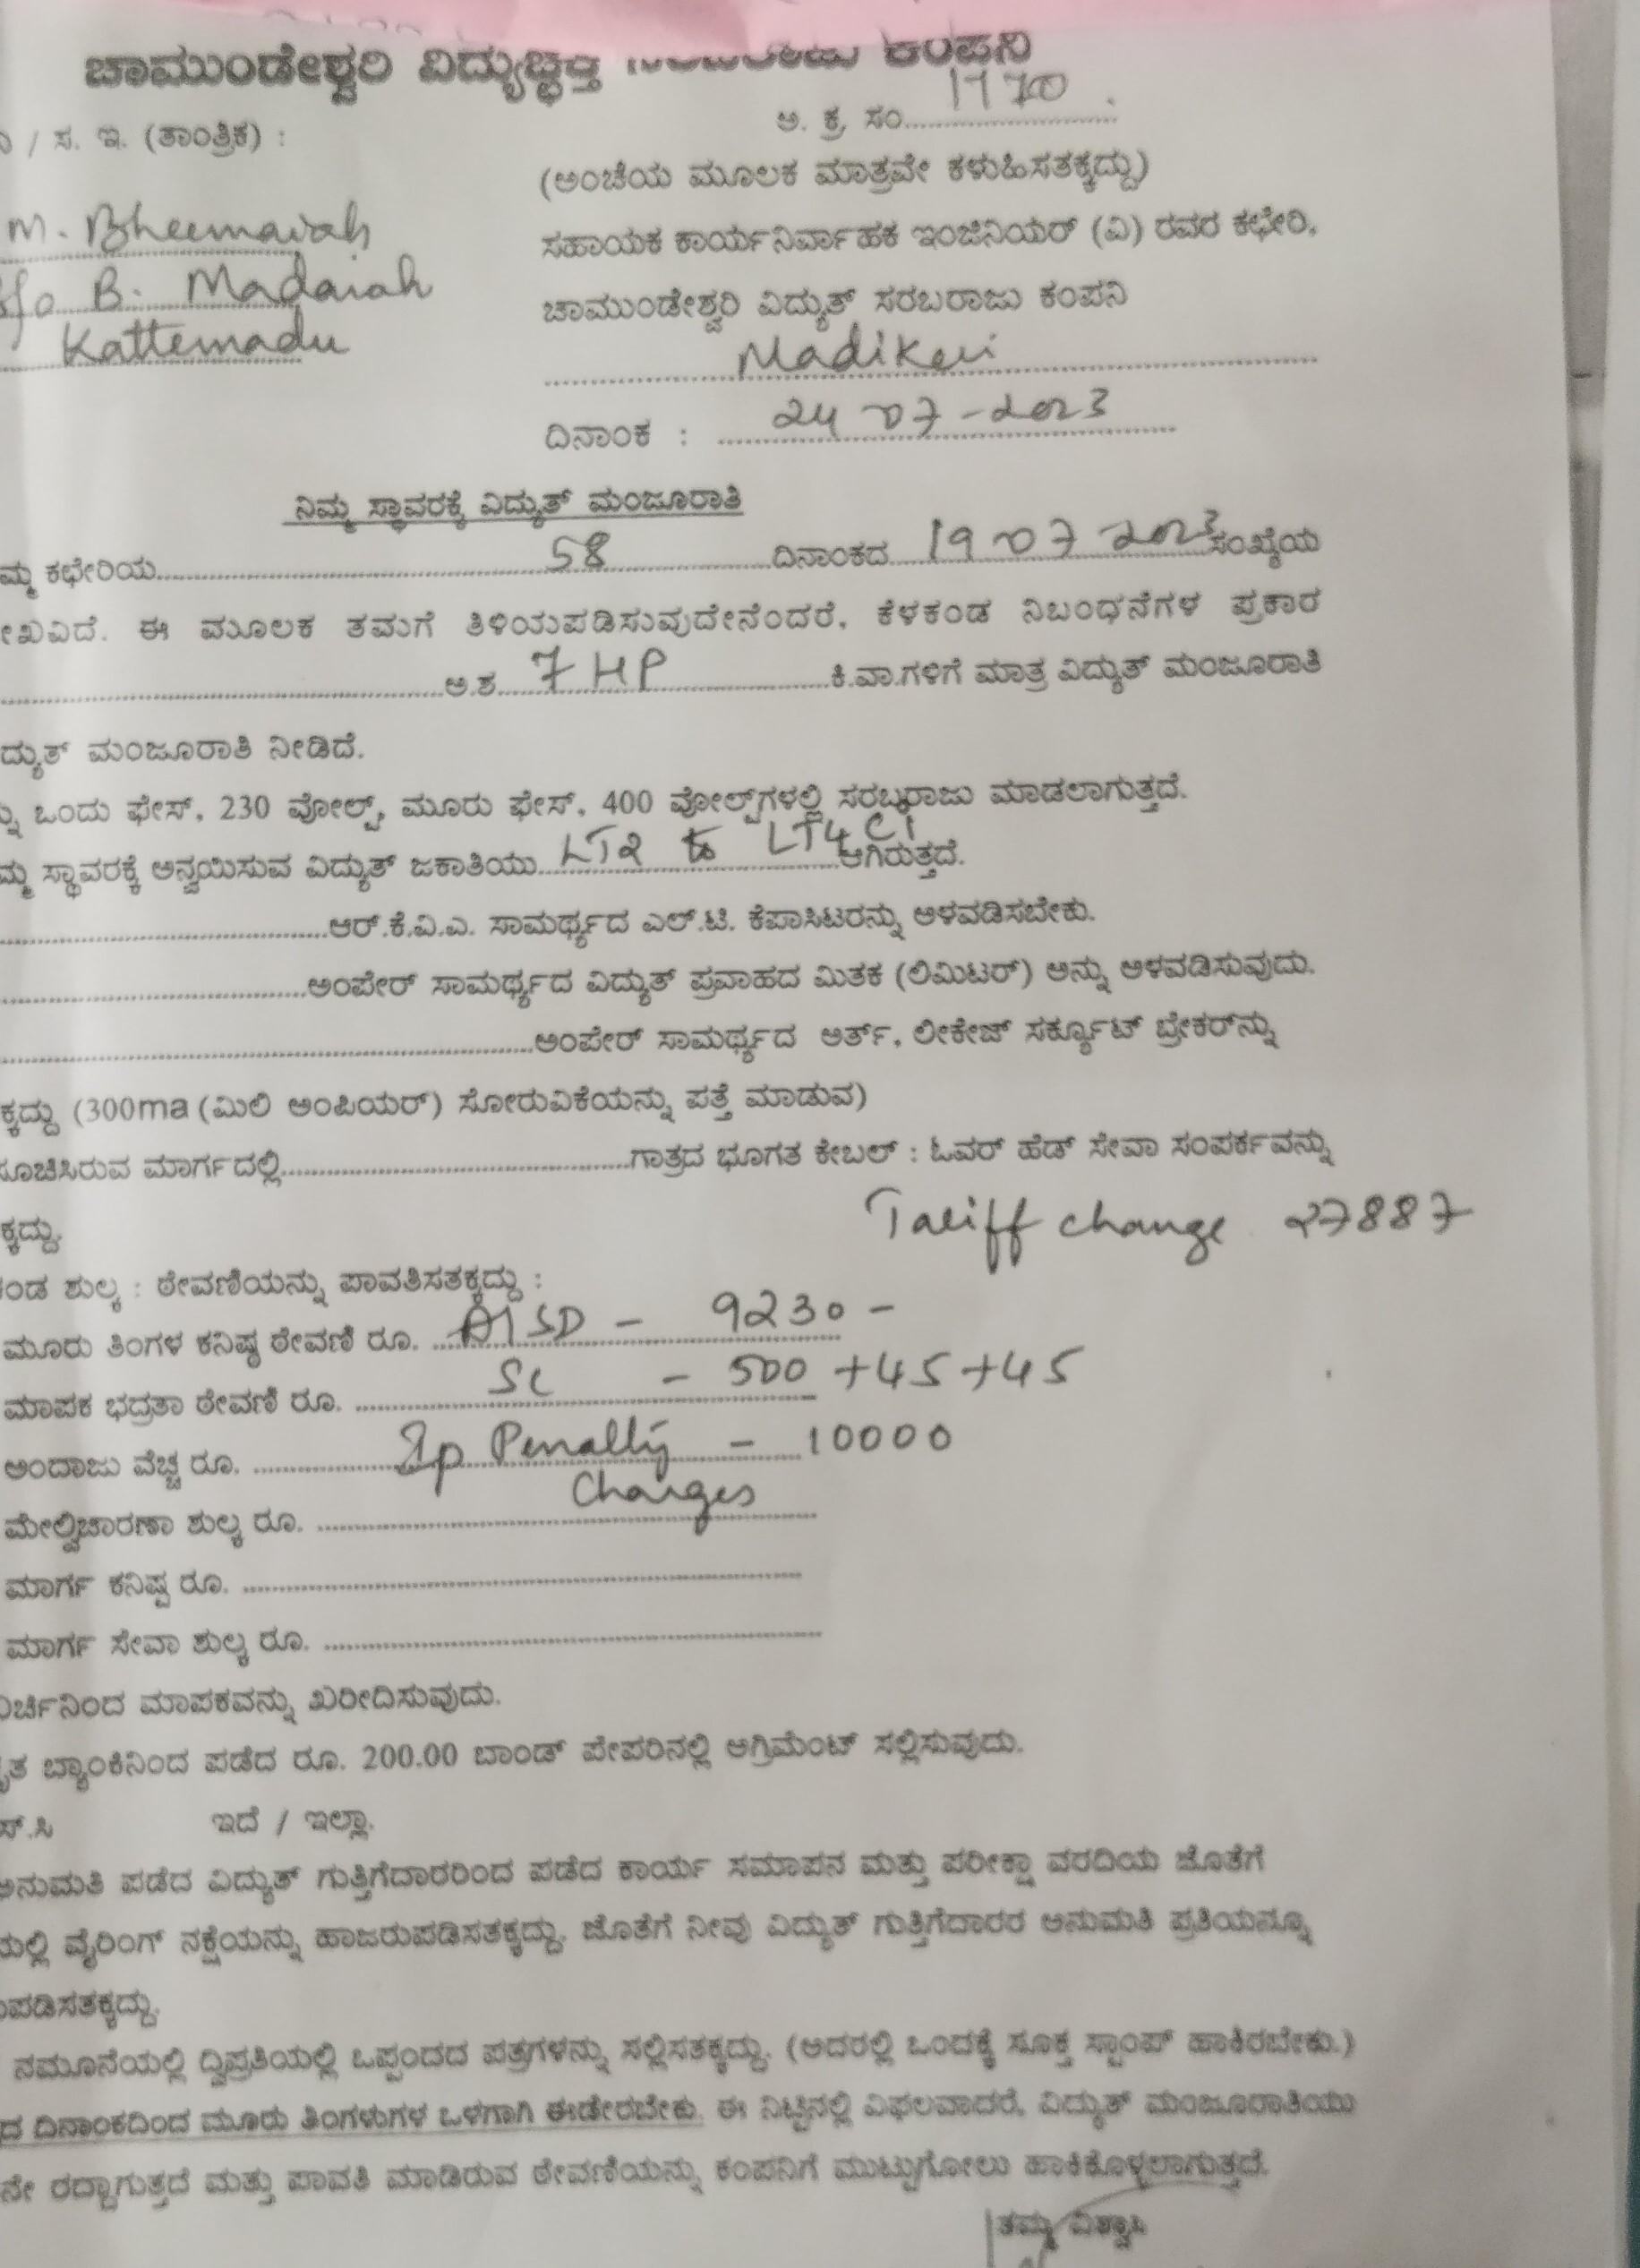 ಚಾಮುಂಡೇಶ್ವರಿ ವಿದ್ಯುಚ್ಛಕ್ತಿ ಕಂಪನಿ
ಅ. ಕ್ರ. ಸಂ. 1770
/ ಸ. ಇ. (ತಾಂತ್ರಿಕ) :
(ಅಂಚೆಯ ಮೂಲಕ ಮಾತ್ರವೇ ಕಳುಹಿಸತಕ್ಕದ್ದು)
M. Bheemaiah
ಸಹಾಯಕ ಕಾರ್ಯನಿರ್ವಾಹಕ ಇಂಜಿನಿಯರ್ (ವಿ) ರವರ ಕಛೇರಿ,
S/o B. Madaiah
ಚಾಮುಂಡೇಶ್ವರಿ ವಿದ್ಯುತ್ ಸರಬರಾಜು ಕಂಪನಿ
Kattemadu
Madikeri
ದಿನಾಂಕ : 24 07-2023
ನಿಮ್ಮ ಸ್ಥಾವರಕ್ಕೆ ವಿದ್ಯುತ್ ಮಂಜೂರಾತಿ
ಮ್ಮ ಕಛೇರಿಯ 58 ದಿನಾಂಕದ 19 07 2023 ಸಂಖ್ಯೆಯ
ೇಖವಿದೆ. ಈ ಮೂಲಕ ತಮಗೆ ತಿಳಿಯಪಡಿಸುವುದೇನೆಂದರೆ, ಕೆಳಕಂಡ ನಿಬಂಧನೆಗಳ ಪ್ರಕಾರ
ಅ.ಶ. 7 HP ಕಿ.ವಾ.ಗಳಿಗೆ ಮಾತ್ರ ವಿದ್ಯುತ್ ಮಂಜೂರಾತಿ
ದ್ಯುತ್ ಮಂಜೂರಾತಿ ನೀಡಿದೆ.
ನ್ನು ಒಂದು ಫೇಸ್, 230 ವೋಲ್ಟ್, ಮೂರು ಫೇಸ್, 400 ವೋಲ್ಟ್‌ಗಳಲ್ಲಿ ಸರಬ್ಬರಾಜು ಮಾಡಲಾಗುತ್ತದೆ.
ಮ್ಮ ಸ್ಥಾವರಕ್ಕೆ ಅನ್ವಯಿಸುವ ವಿದ್ಯುತ್ ಜಕಾತಿಯು LT2 to LT4 C1 ಆಗಿರುತ್ತದೆ.
ಆರ್.ಕೆ.ವಿ.ಎ. ಸಾಮರ್ಥ್ಯದ ಎಲ್.ಟಿ. ಕೆಪಾಸಿಟರನ್ನು ಅಳವಡಿಸಬೇಕು.
ಅಂಪೇರ್ ಸಾಮರ್ಥ್ಯದ ವಿದ್ಯುತ್ ಪ್ರವಾಹದ ಮಿತಕ (ಲಿಮಿಟರ್) ಅನ್ನು ಅಳವಡಿಸುವುದು.
ಅಂಪೇರ್ ಸಾಮರ್ಥ್ಯದ ಅರ್ತ್, ಲೀಕೇಜ್ ಸರ್ಕ್ಯೂಟ್ ಬ್ರೇಕರ್‌ನ್ನು
ಕ್ಕದ್ದು (300ma (ಮಿಲಿ ಅಂಪಿಯರ್) ಸೋರುವಿಕೆಯನ್ನು ಪತ್ತೆ ಮಾಡುವ)
ಸೂಚಿಸಿರುವ ಮಾರ್ಗದಲ್ಲಿ ಗಾತ್ರದ ಭೂಗತ ಕೇಬಲ್ : ಓವರ್ ಹೆಡ್ ಸೇವಾ ಸಂಪರ್ಕವನ್ನು
ಕ್ಕದ್ದು.
Tariff change 27887
ಕಂಡ ಶುಲ್ಕ : ಠೇವಣಿಯನ್ನು ಪಾವತಿಸತಕ್ಕದ್ದು :
ಮೂರು ತಿಂಗಳ ಕನಿಷ್ಠ ಠೇವಣಿ ರೂ. SD - 9230 -
ಮಾಪಕ ಭದ್ರತಾ ಠೇವಣಿ ರೂ. SC - 500 + 45 + 45
ಅಂದಾಜು ವೆಚ್ಚ ರೂ. Penalty - 10000
Charges
ಮೇಲ್ವಿಚಾರಣಾ ಶುಲ್ಕ ರೂ.
ಮಾರ್ಗ ಕನಿಷ್ಠ ರೂ.
ಮಾರ್ಗ ಸೇವಾ ಶುಲ್ಕ ರೂ.
ರ್ಚಿನಿಂದ ಮಾಪಕವನ್ನು ಖರೀದಿಸುವುದು.
ೃತ ಬ್ಯಾಂಕಿನಿಂದ ಪಡೆದ ರೂ. 200.00 ಬಾಂಡ್ ಪೇಪರಿನಲ್ಲಿ ಅಗ್ರಿಮೆಂಟ್ ಸಲ್ಲಿಸುವುದು.
ಸ್.ಸಿ ಇದೆ / ಇಲ್ಲಾ.
ಅನುಮತಿ ಪಡೆದ ವಿದ್ಯುತ್ ಗುತ್ತಿಗೆದಾರರಿಂದ ಪಡೆದ ಕಾರ್ಯ ಸಮಾಪನ ಮತ್ತು ಪರೀಕ್ಷಾ ವರದಿಯ ಜೊತೆಗೆ
ಯಲ್ಲಿ ವೈರಿಂಗ್ ನಕ್ಷೆಯನ್ನು ಹಾಜರುಪಡಿಸತಕ್ಕದ್ದು. ಜೊತೆಗೆ ನೀವು ವಿದ್ಯುತ್ ಗುತ್ತಿಗೆದಾರರ ಅನುಮತಿ ಪ್ರತಿಯನ್ನೂ
ುಪಡಿಸತಕ್ಕದ್ದು.
ನಮೂನೆಯಲ್ಲಿ ದ್ವಿಪ್ರತಿಯಲ್ಲಿ ಒಪ್ಪಂದದ ಪತ್ರಗಳನ್ನು ಸಲ್ಲಿಸತಕ್ಕದ್ದು. (ಅದರಲ್ಲಿ ಒಂದಕ್ಕೆ ಸೂಕ್ತ ಸ್ಟಾಂಪ್ ಹಾಕಿರಬೇಕು.)
ದ ದಿನಾಂಕದಿಂದ ಮೂರು ತಿಂಗಳುಗಳ ಒಳಗಾಗಿ ಈಡೇರಬೇಕು. ಈ ನಿಟ್ಟಿನಲ್ಲಿ ವಿಫಲವಾದರೆ, ವಿದ್ಯುತ್ ಮಂಜೂರಾತಿಯು
ನೇ ರದ್ದಾಗುತ್ತದೆ ಮತ್ತು ಪಾವತಿ ಮಾಡಿರುವ ಠೇವಣಿಯನ್ನು ಕಂಪನಿಗೆ ಮುಟ್ಟುಗೋಲು ಹಾಕಿಕೊಳ್ಳಲಾಗುತ್ತದೆ.
ತಮ್ಮ ವಿಶ್ವಾಸಿ